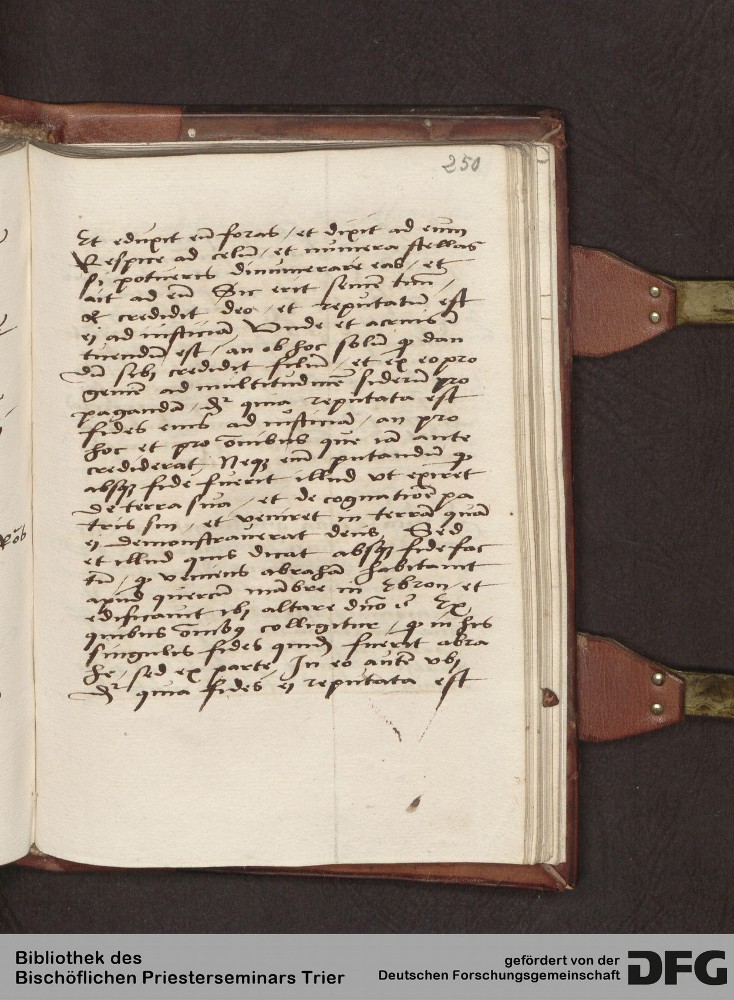 250
Et eduxit eū foras / et dixit ad eum
Respice ad celū / et numera stellas
si potueris dinumerare eas / et
ait ad eū Sic erit semē tuū /
& credidit deo / et reputatū est
ei ad iusticiā Vnde et acrius ī
tuendū est / an ob hoc solū qꝫ dan
dū sibi credidit filiū / et ex eo pro
geniē ad multitudinē siderū pro
pagandā / dr̄ quia reputata est
fides eius ad iusticiā / an pro
hoc et pro om̄ibus que iā ante
crediderat Neqꝫ enī putandū qꝫ
absqꝫ fide fuerit illud vt exiret
de terra sua / et de cognatiōe pa
tris sui / et veniret in terrā quā
ei demonstrauerat deus Sed
et illud quis dicat absqꝫ fide fac
tū / qꝫ veniens abrahā habitauit
apud quercū mābre in Ebron / et
edificauit ibi altare dn̄o Ex
quibus oībus colligitur / qꝫ in his
singulis fides quidē fuerit abra
he / sed ex parte In eo autē vbi
dr̄ quia fides ei reputata est
Bibliothek des
Bischöflichen Priesterseminars Trier
gefördert von der
Deutschen Forschungsgemeinschaft
DFG